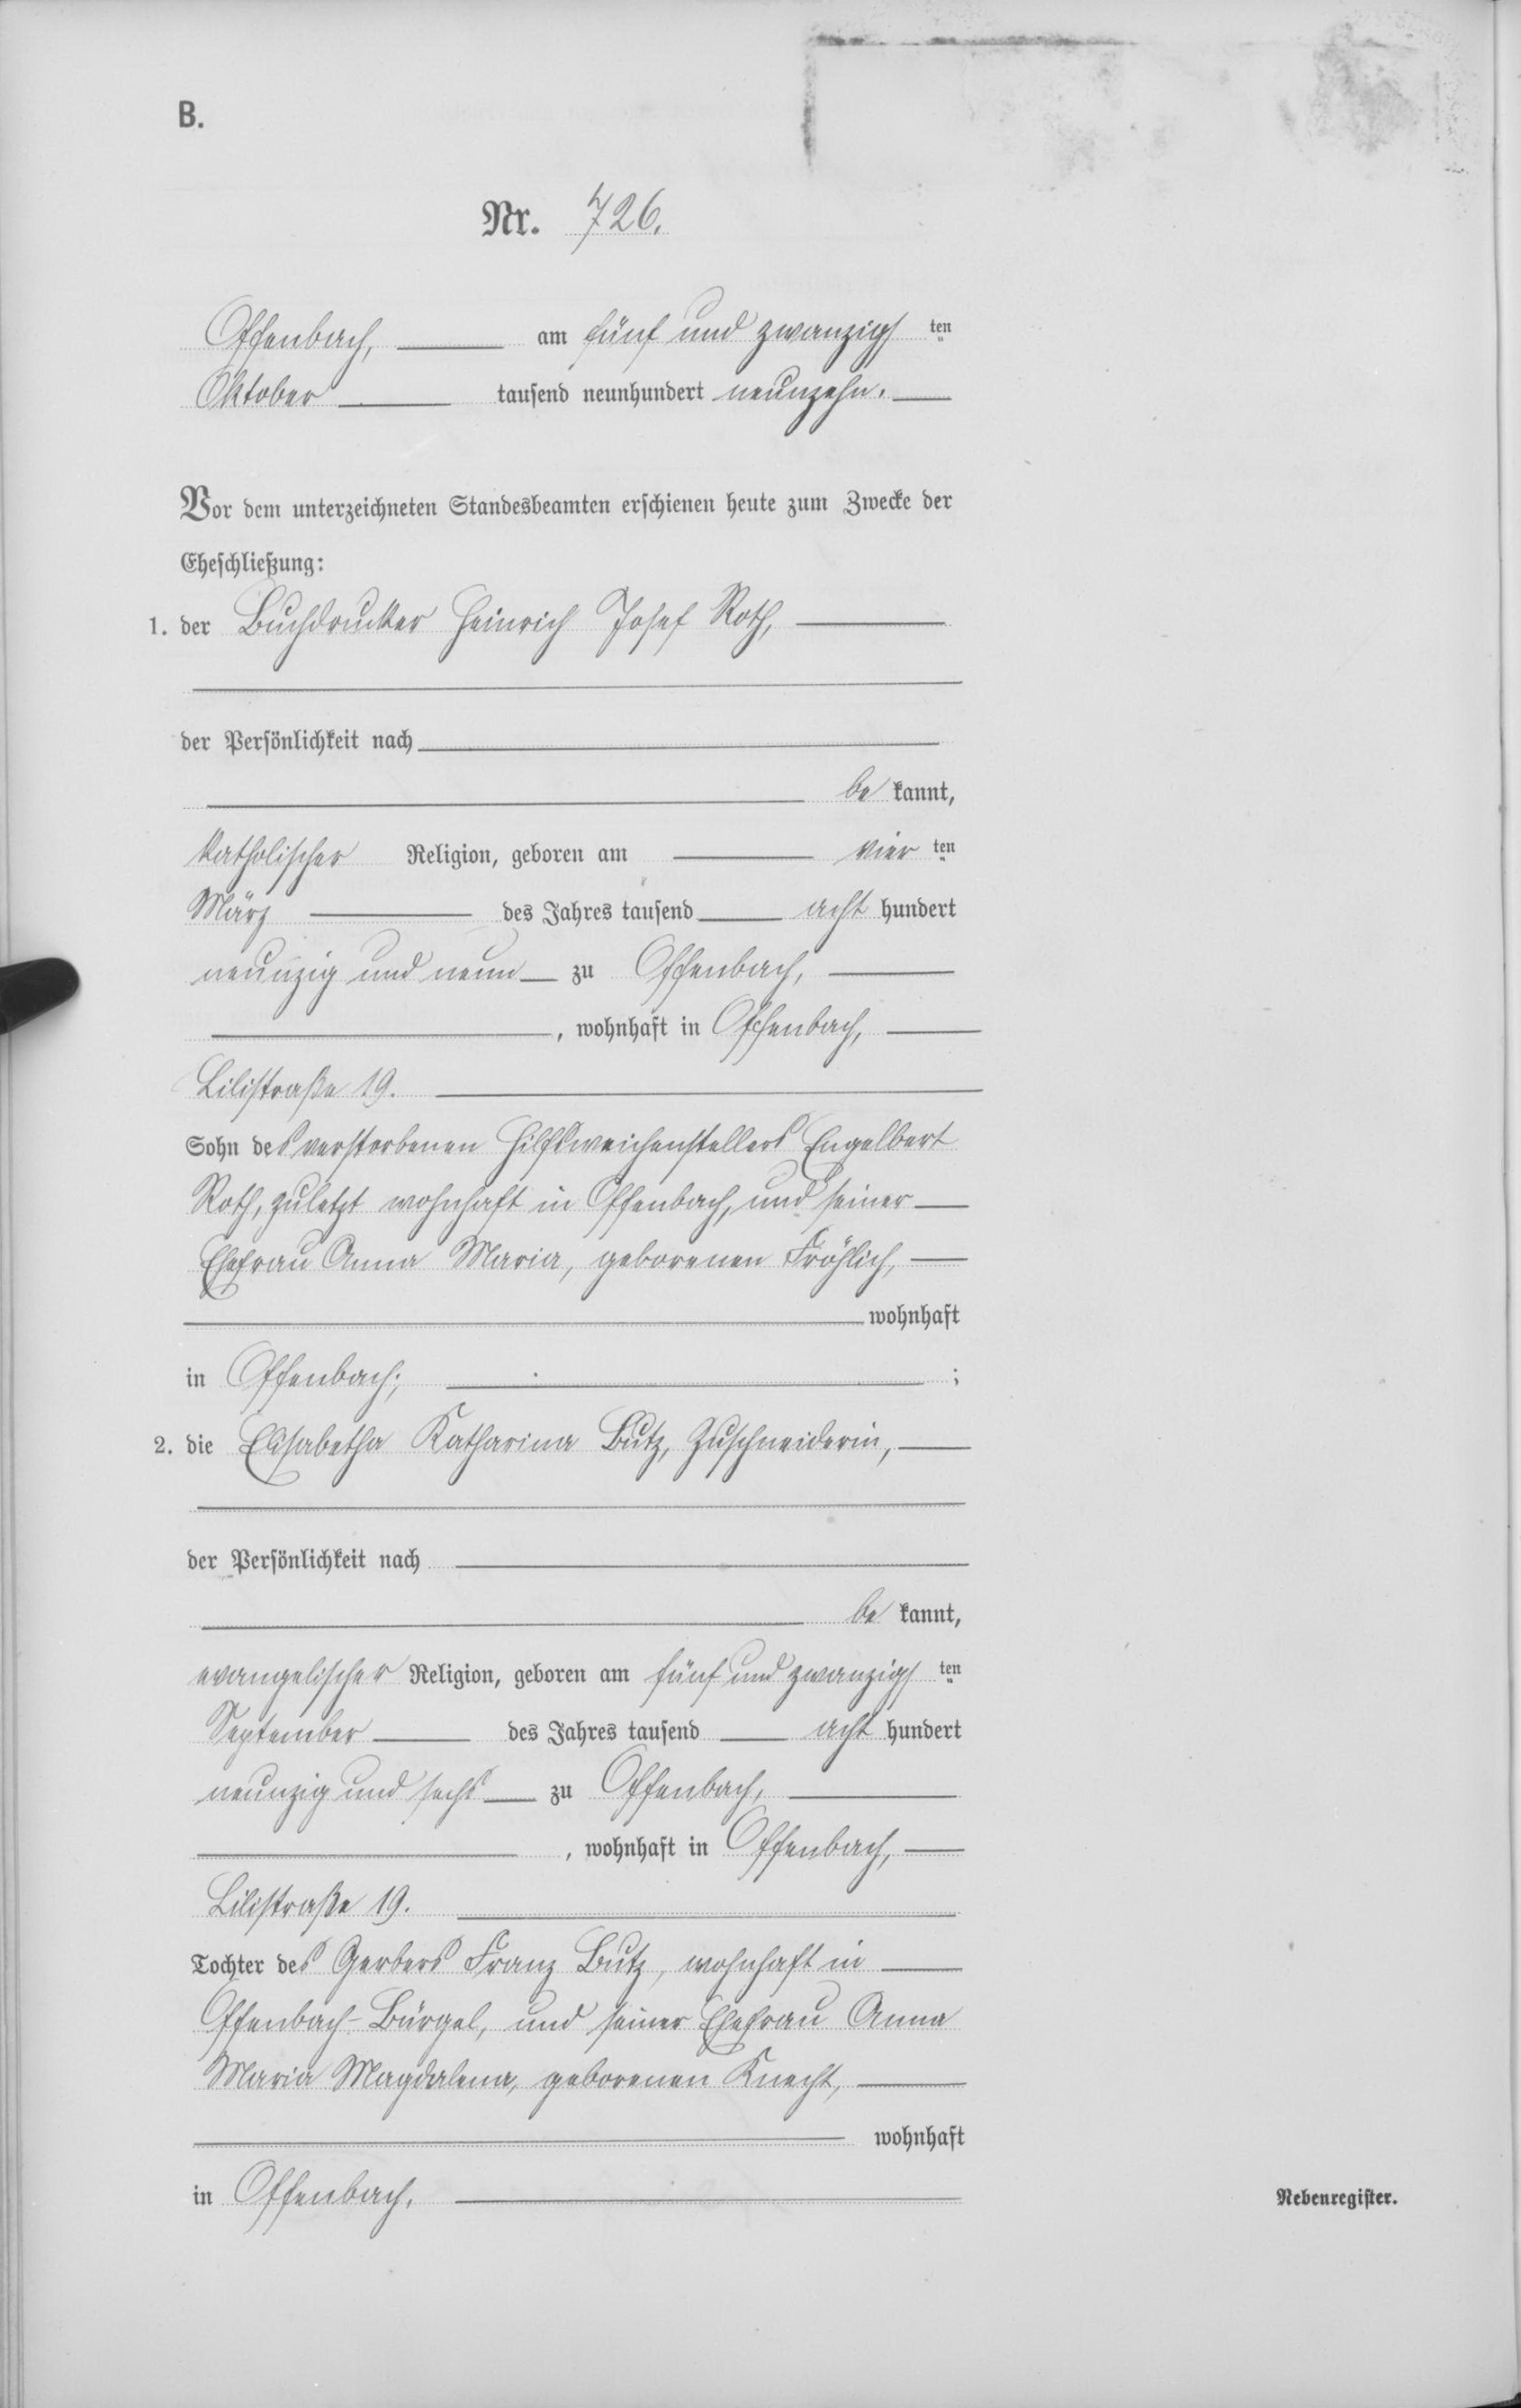 B.
Nr. 726.
Offenbach, am fünf und zwanzigs ten
Oktober tausend neunhundert neunzehn.
Vor dem unterzeichneten Standesbeamten erschienen heute zum Zwecke der
Eheschließung:
1. der Buchdrucker Heinrich Josef Roth,
der Persönlichkeit nach
be kannt,
katholischer Religion, geboren am vier ten
März des Jahres tausend acht hundert
neunzig und neun zu Offenbach,
, wohnhaft in Offenbach,
Lilistraße 19.
Sohn des verstorbenen Hilfsweichenstellers Engelbert
Roth, zuletzt wohnhaft in Offenbach, und seiner
Ehefrau Anna Maria, geborenen Fröhlich,
wohnhaft
in Offenbach; ;
2. die Elisabetha Katharina Butz, Zuschneiderin,
der Persönlichkeit nach
be kannt,
evangelischer Religion, geboren am fünf und zwanzigs ten
September des Jahres tausend acht hundert
neunzig und sechs zu Offenbach,
, wohnhaft in Offenbach,
Lilistraße 19.
Tochter des Gerbers Franz Butz, wohnhaft in
Offenbach-Bürgel, und seiner Ehefrau Anna
Maria Magdalena, geborenen Knecht,
wohnhaft
in Offenbach.
Nebenregister.